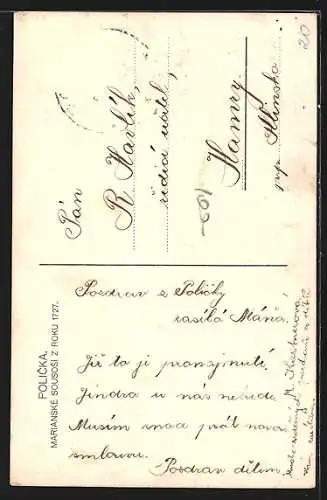 20
Pán
R. Havlík,
řídící učitel,
Hamry.
p. p. Hlinsko.
POLIČKA.
MARIANSKÉ SOUSOŠÍ Z ROKU 1727.
Pozdrav z Poličky
zasílá Máňa!
Již to ji pronajmuti.
Jindra u nás nebude
Musím snad psát novou
smlouvu.
Pozdrav dětem
M.